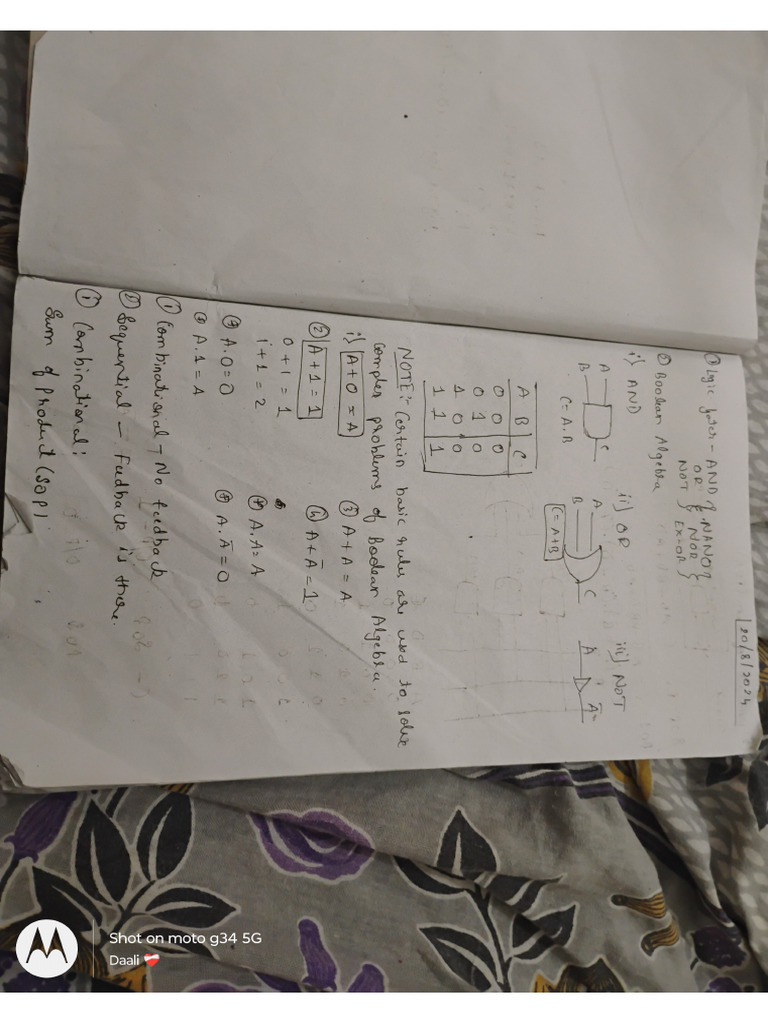 20/8/2024
① Logic Gates - AND } NAND }
OR } NOR }
NOT } EX-OR }
② Boolean Algebra
i) AND ii) OR iii) NOT
A B C A B C A Ā
C = A.B C = A+B
A B C
0 0 0
0 1 0
1 0 0
1 1 1
NOTE:- Certain basic rules are used to solve
complex problems of Boolean Algebra.
i) A+0 = A ③ A+A = A
② A+1 = 1 ④ A+Ā = 1
0+1 = 1
1+1 = 2 A.A = A
A.0 = 0 A.Ā = 0
A.1 = A
① Combinational → No feedback
② Sequential - Fedback is there.
① Combinational:
Sum of Product (SOP)
Shot on moto g34 5G
Daali ❤️‍🩹